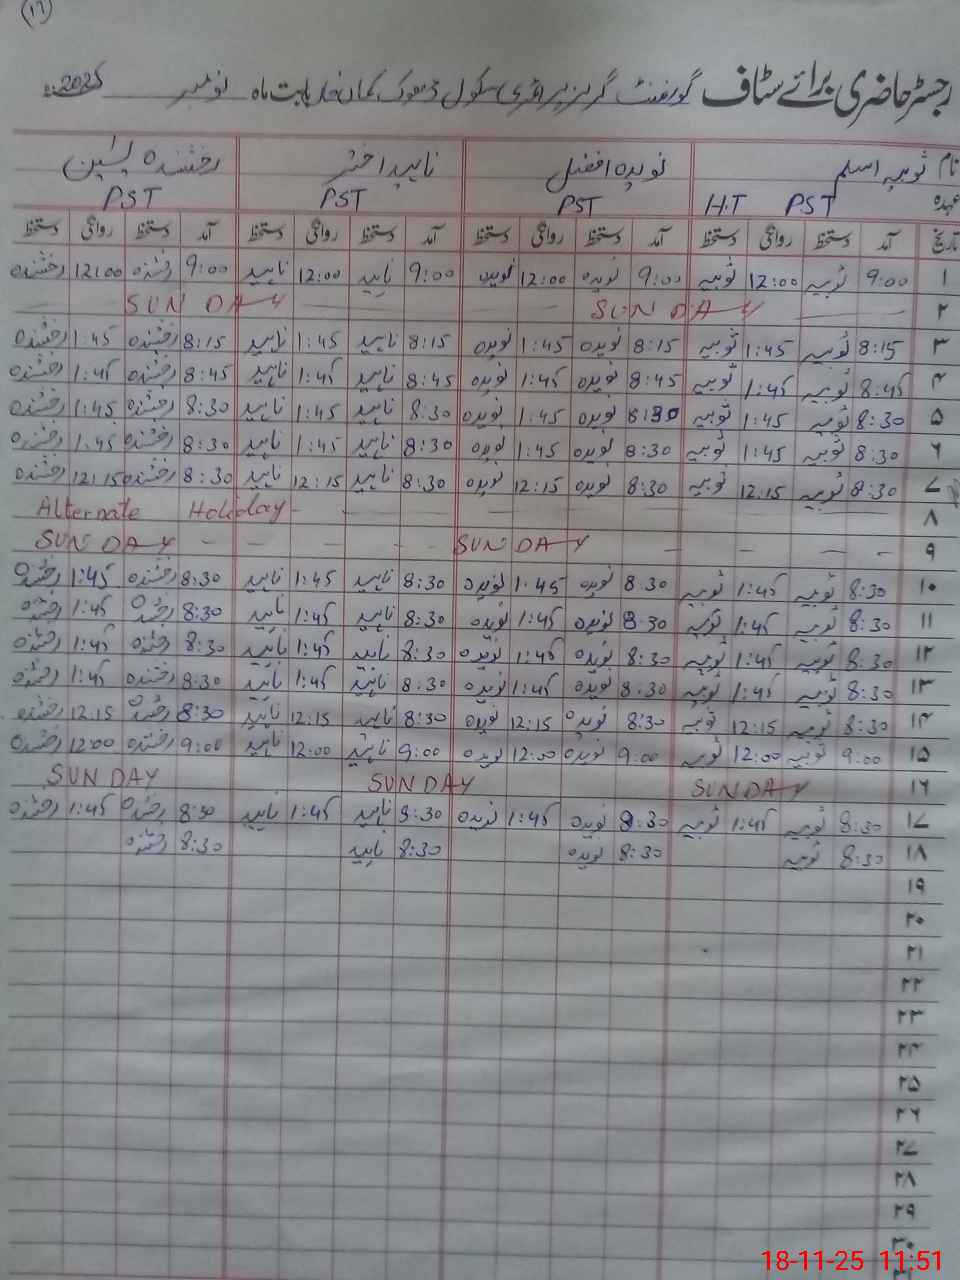 (۱۶)
رجسٹر حاضری برائے سٹاف گورنمنٹ گرلز پرائمری سکول ڈھوک کمان خان بابت ماہ نومبر 2025ء
نام ثوبیہ اسلم نویدہ افضل ناہید اختر رخشندہ یٰسین
عہدہ PST H.T PST PST PST
تاریخ آمد دستخط روانگی دستخط آمد دستخط روانگی دستخط آمد دستخط روانگی دستخط آمد دستخط روانگی دستخط
۱ 9:00 ثوبیہ 12:00 ثوبیہ 9:00 نویدہ 12:00 نویدہ 9:00 ناہید 12:00 ناہید 9:00 رخشندہ 12:00 رخشندہ
۲ SUNDAY SUNDAY
۳ 8:15 ثوبیہ 1:45 ثوبیہ 8:15 نویدہ 1:45 نویدہ 8:15 ناہید 1:45 ناہید 8:15 رخشندہ 1:45 رخشندہ
۴ 8:45 ثوبیہ 1:45 ثوبیہ 8:45 نویدہ 1:45 نویدہ 8:45 ناہید 1:45 ناہید 8:45 رخشندہ 1:45 رخشندہ
۵ 8:30 ثوبیہ 1:45 ثوبیہ 8:30 نویدہ 1:45 نویدہ 8:30 ناہید 1:45 ناہید 8:30 رخشندہ 1:45 رخشندہ
۶ 8:30 ثوبیہ 1:45 ثوبیہ 8:30 نویدہ 1:45 نویدہ 8:30 ناہید 1:45 ناہید 8:30 رخشندہ 1:45 رخشندہ
۷ 8:30 ثوبیہ 12:15 ثوبیہ 8:30 نویدہ 12:15 نویدہ 8:30 ناہید 12:15 ناہید 8:30 رخشندہ 12:15 رخشندہ
۸ Alternate Holiday
۹ SUNDAY SUNDAY
۱۰ 8:30 ثوبیہ 1:45 ثوبیہ 8:30 نویدہ 1:45 نویدہ 8:30 ناہید 1:45 ناہید 8:30 رخشندہ 1:45 رخشندہ
۱۱ 8:30 ثوبیہ 1:45 ثوبیہ 8:30 نویدہ 1:45 نویدہ 8:30 ناہید 1:45 ناہید 8:30 رخشندہ 1:45 رخشندہ
۱۲ 8:30 ثوبیہ 1:45 ثوبیہ 8:30 نویدہ 1:45 نویدہ 8:30 ناہید 1:45 ناہید 8:30 رخشندہ 1:45 رخشندہ
۱۳ 8:30 ثوبیہ 1:45 ثوبیہ 8:30 نویدہ 1:45 نویدہ 8:30 ناہید 1:45 ناہید 8:30 رخشندہ 1:45 رخشندہ
۱۴ 8:30 ثوبیہ 12:15 ثوبیہ 8:30 نویدہ 12:15 نویدہ 8:30 ناہید 12:15 ناہید 8:30 رخشندہ 12:15 رخشندہ
۱۵ 9:00 ثوبیہ 12:00 ثوبیہ 9:00 نویدہ 12:00 نویدہ 9:00 ناہید 12:00 ناہید 9:00 رخشندہ 12:00 رخشندہ
۱۶ SUNDAY SUNDAY SUNDAY
۱۷ 8:30 ثوبیہ 1:45 ثوبیہ 8:30 نویدہ 1:45 نویدہ 8:30 ناہید 1:45 ناہید 8:30 رخشندہ 1:45 رخشندہ
۱۸ 8:30 ثوبیہ 8:30 نویدہ 8:30 ناہید 8:30 رخشندہ
۱۹
۲۰
۲۱
۲۲
۲۳
۲۴
۲۵
۲۶
۲۷
۲۸
۲۹
۳۰
18-11-25 11:51